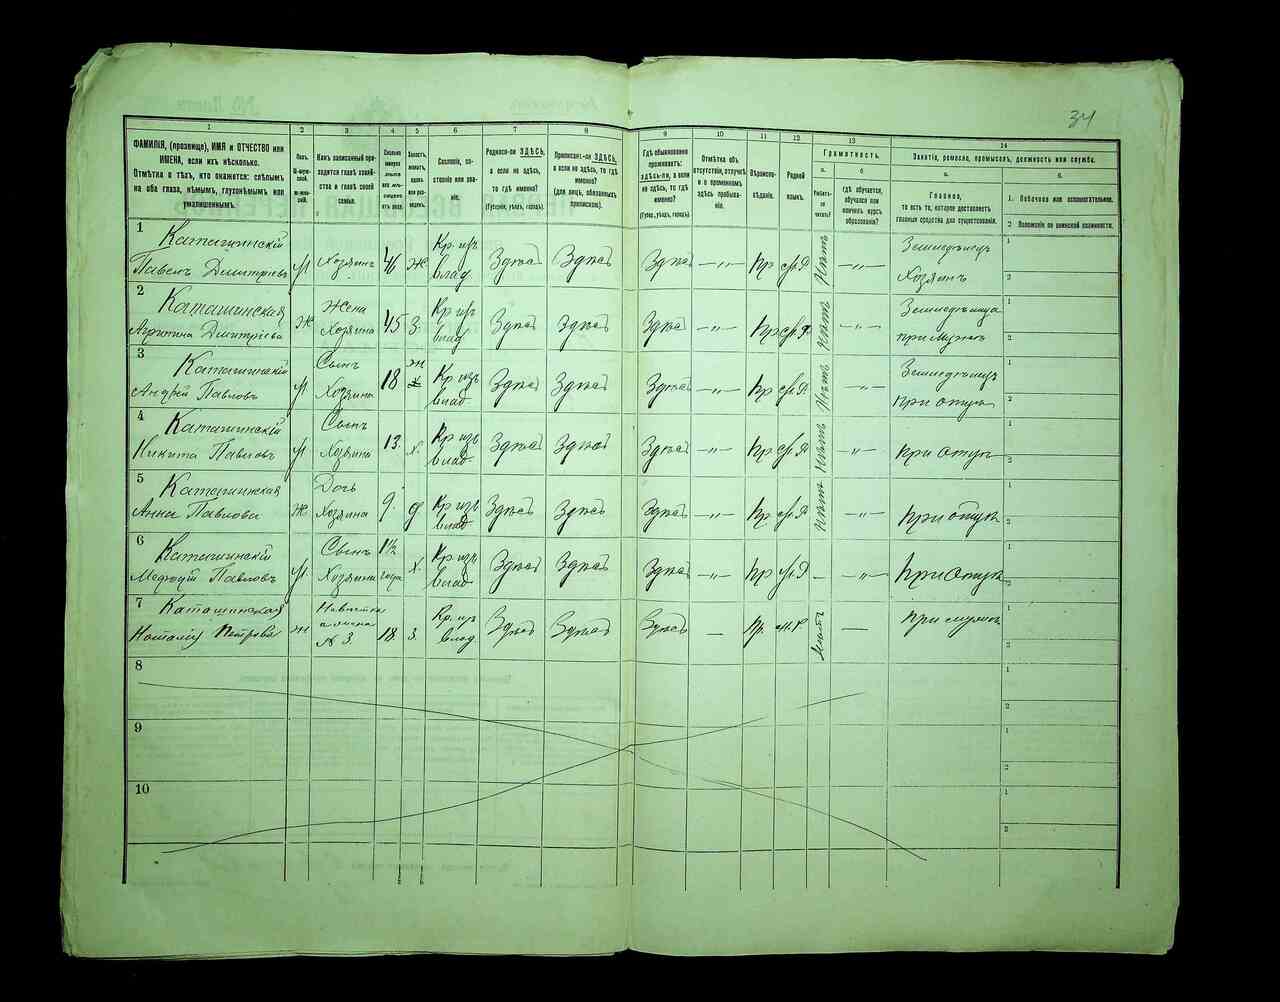 34
1 2 3 4 5 6 7 8 9 10 11 12 13 14
ФАМИЛІЯ, (прозвище), ИМЯ и ОТЧЕСТВО или ИМЕНА, если ихъ нѣсколько.
Отмѣтка о тѣхъ, кто окажется: слѣпымъ на оба глаза, нѣмымъ, глухонѣмымъ или умалишеннымъ.
Какъ записанный приходится главѣ хозяйства и главѣ своей семьи.
Сословіе, состояніе или званіе.
Родился-ли ЗДѢСЬ, а если не здѣсь, то гдѣ именно?
(Губернія, уѣздъ, городъ).
Приписанъ-ли ЗДѢСЬ, а если не здѣсь, то гдѣ именно?
(для лицъ, обязанныхъ припиской).
Гдѣ обыкновенно проживаетъ: здѣсь-ли, а если не здѣсь, то гдѣ именно?
(Губер., уѣздъ, городъ).
Отмѣтка объ отсутствіи, отлучкѣ и о временномъ здѣсь пребываніи.
Вѣроисповѣданіе.
Родной языкъ.
Грамотность.
а. Умѣетъ-ли читать?
б. Гдѣ обучается, обучался или кончилъ курсъ образованія?
Занятіе, ремесло, промыселъ, должность или служба.
а. Главное,
то есть то, которое доставляетъ главныя средства для существованія.
б.
1. Побочное или вспомогательное.
2. Положеніе по воинской повинности.
1 Каташинскій
Павелъ Дмитріевъ М Хозяинъ 46 Ж Кр. изъ влад Здѣсь Здѣсь Здѣсь —„— Пр Нѣтъ —„— Земледѣлецъ Хозяинъ 1 2
2 Каташинская
Дмитріева Ж Жена Хозяина 45 З. Кр изъ влад Здѣсь Здѣсь Здѣсь —„— Пр Нѣтъ —„— при мужѣ 1 2
3 Каташинскій
Андрей Павловъ М Сынъ Хозяина 18 Ж Кр изъ влад Здѣсь Здѣсь Здѣсь —„— Пр Нѣтъ —„— Земледѣлецъ при отцѣ 1 2
4 Каташинскій
Никита Павловъ М Сынъ Хозяина 13. Х. Кр изъ влад Здѣсь Здѣсь Здѣсь —„— Пр Нѣтъ —„— при отцѣ 1 2
5 Каташинская
Анна Павлова Ж Дочь Хозяина 9. Д Кр изъ влад Здѣсь Здѣсь Здѣсь —„— Пр Нѣтъ —„— при отцѣ 1 2
6 Каташинскій
Павловъ М. Сынъ Хозяина 1½ года Х. Кр изъ влад Здѣсь Здѣсь Здѣсь —„— Пр — —„— при отцѣ 1 2
7 Каташинская
Петрова Ж Невѣстка № 3. 18. З. Кр. изъ влад Здѣсь Здѣсь Здѣсь — Пр. Нѣтъ — при мужѣ 1 2
8 1 2
9 1 2
10 1 2